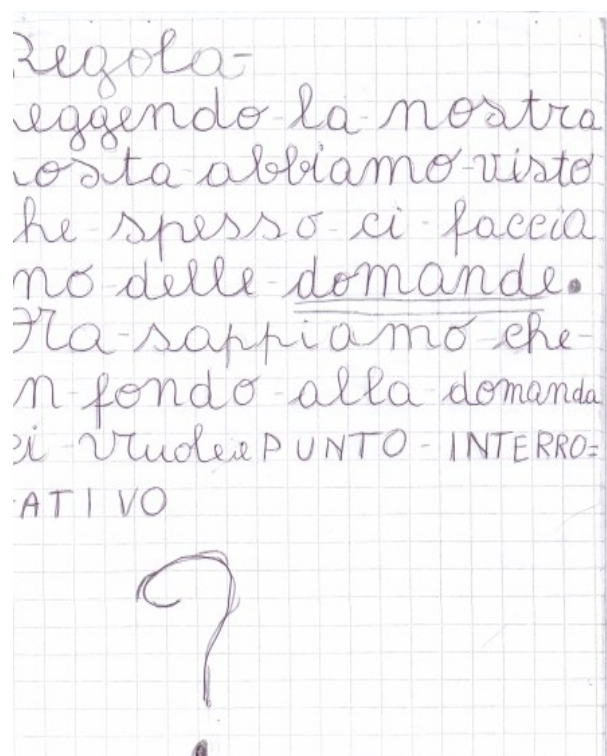 Regola-
eggendo-la-nostra
osta-abbiamo-visto
he-spesso-ci-faccia
mo-delle-domande.
Ora-sappiamo-che-
n-fondo-alla-domanda
ci-vuole il PUNTO-INTERRO=
ATIVO
?